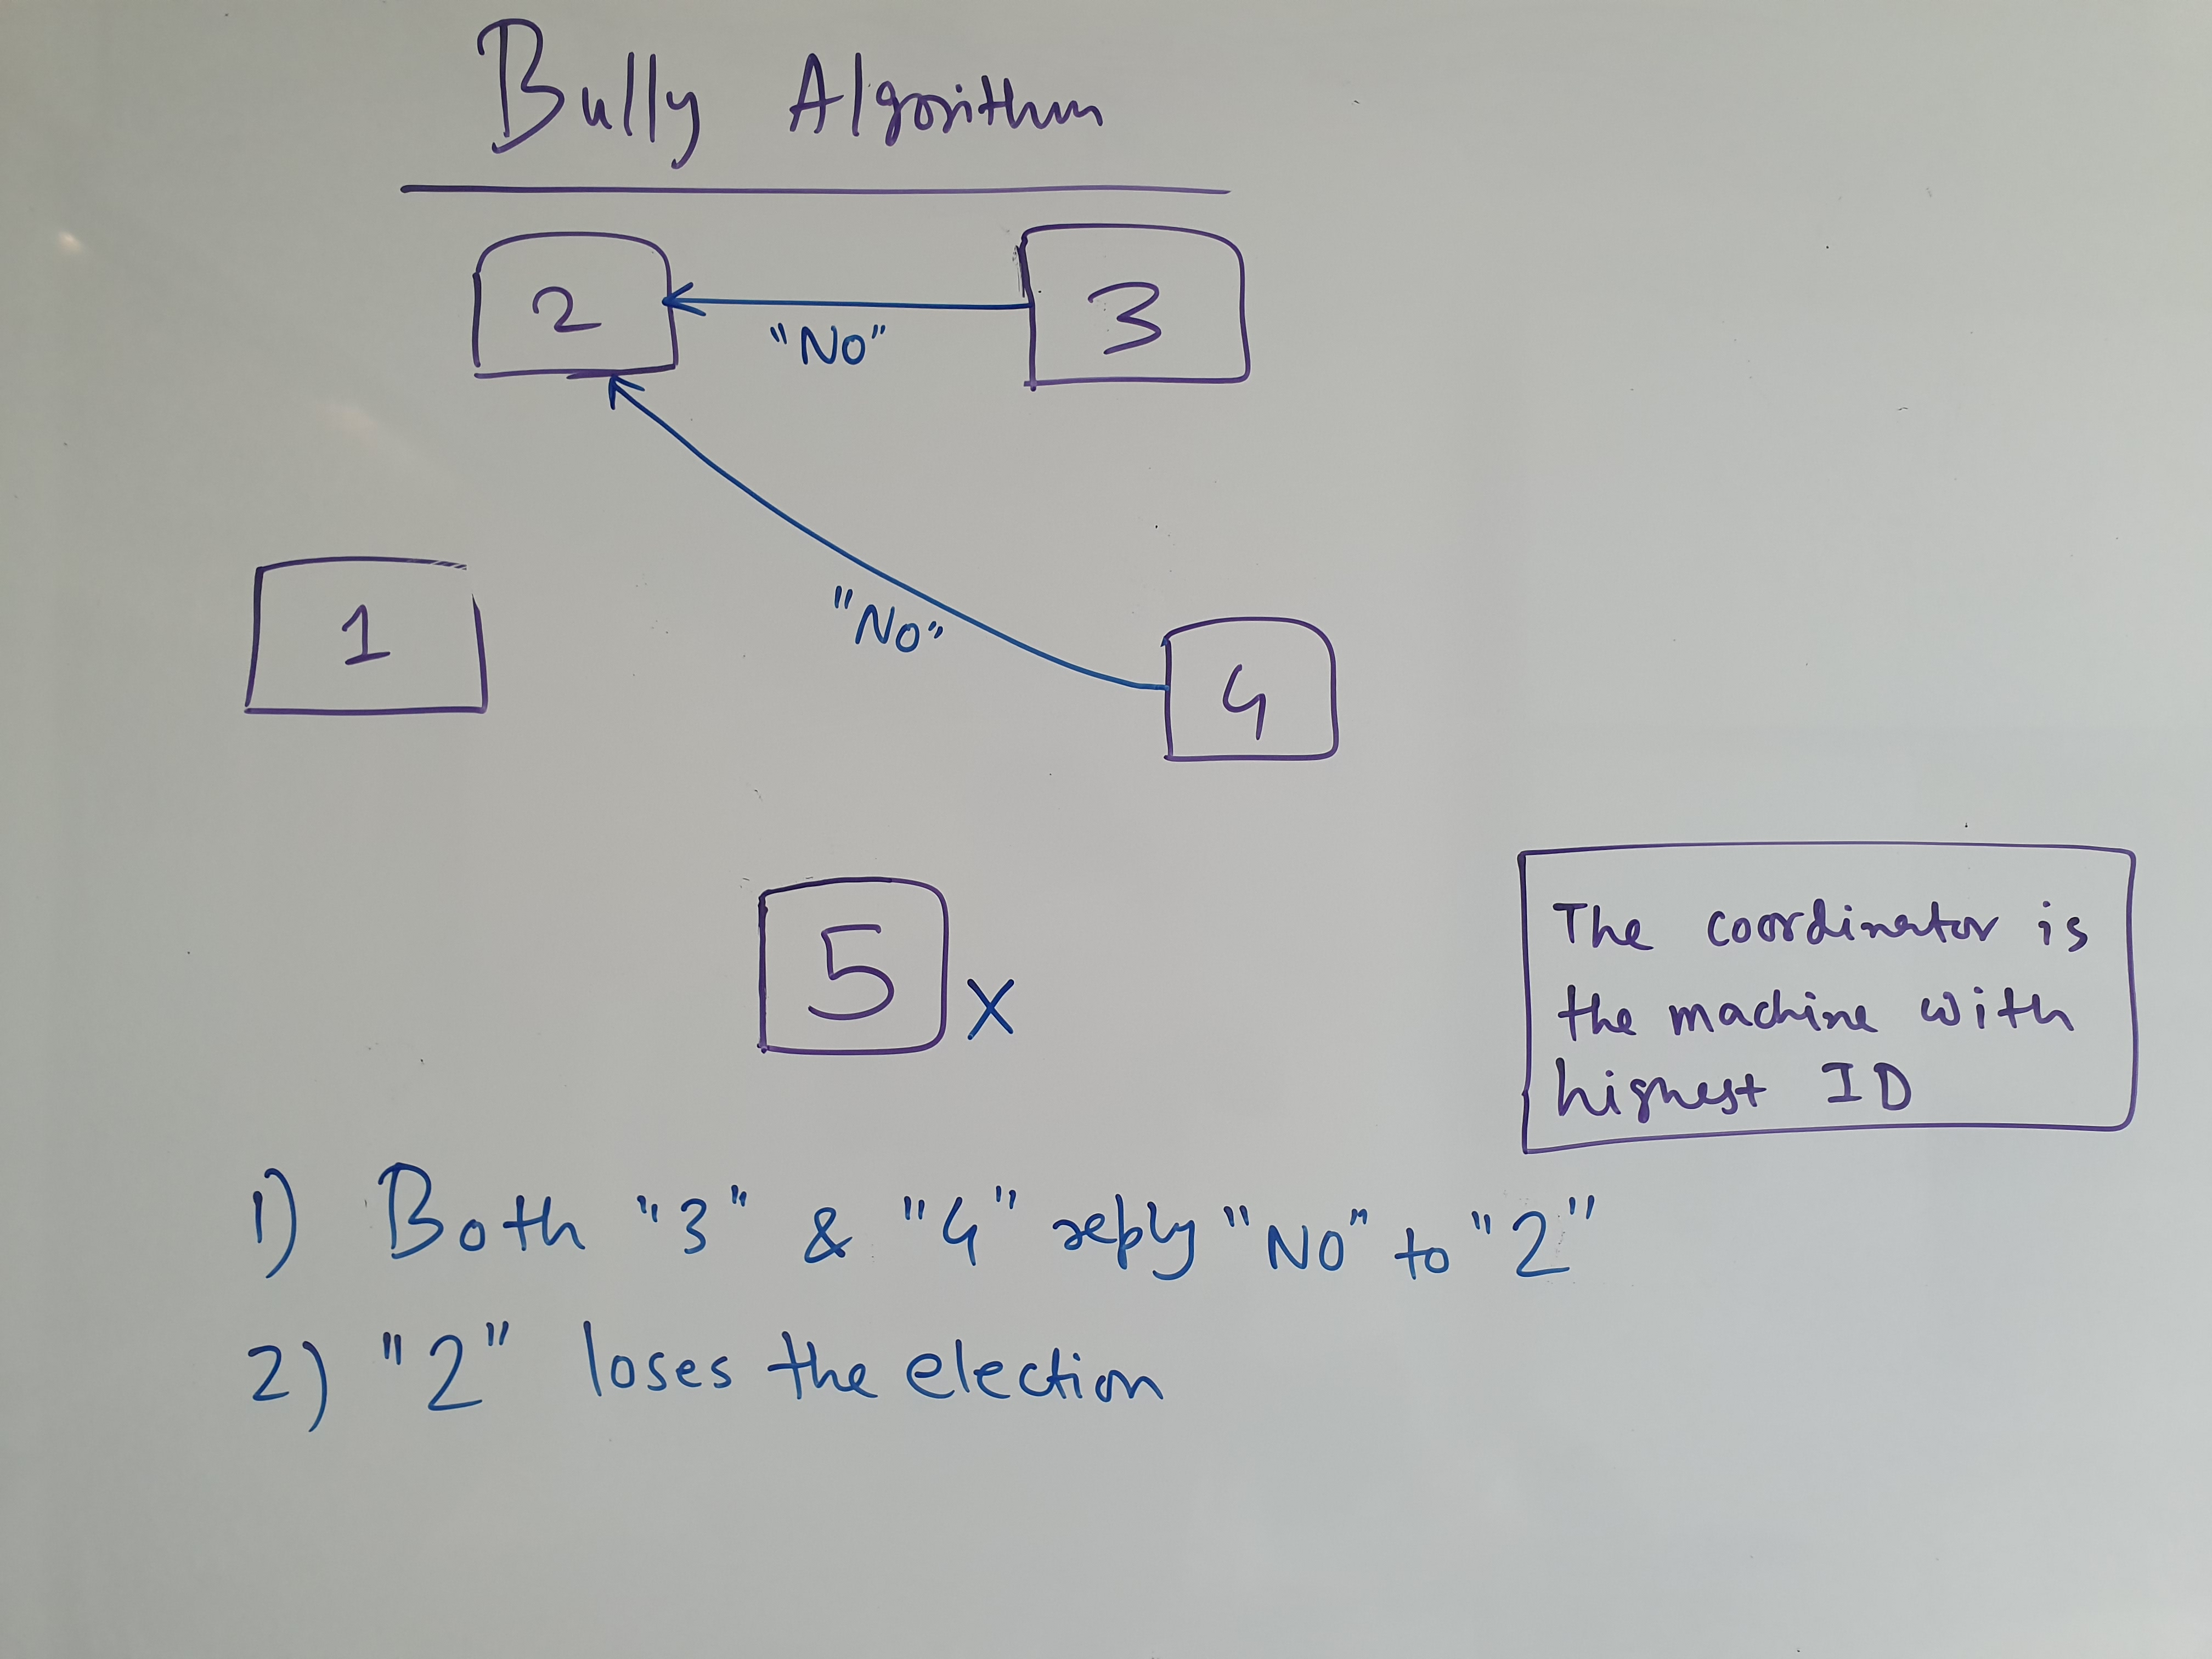 Bully Algorithm
2
3
"No"
"No"
1
4
5 X
The coordinator is
the machine with
highest ID
1) Both "3" & "4" reply "NO" to "2"
2) "2" loses the election